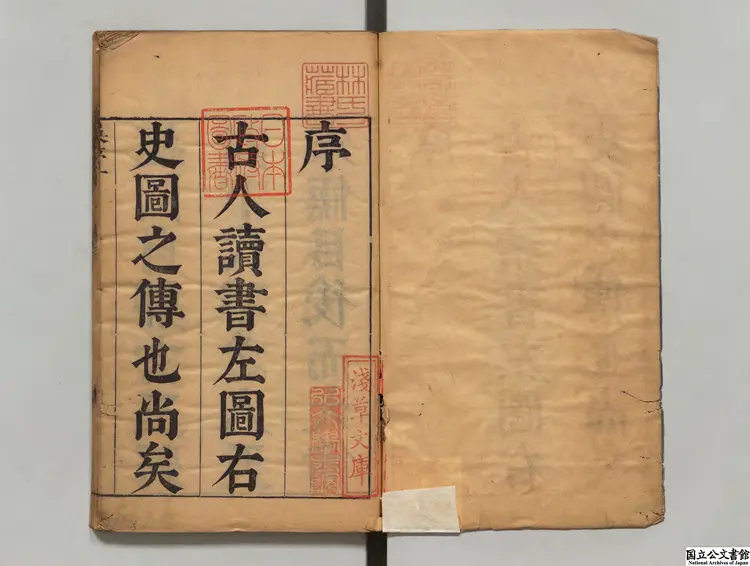 序
古人讀書左圖右
史圖之傳也尚矣
林氏
藏書
日本
淺草文庫
国立公文書館
National Archives of Japan